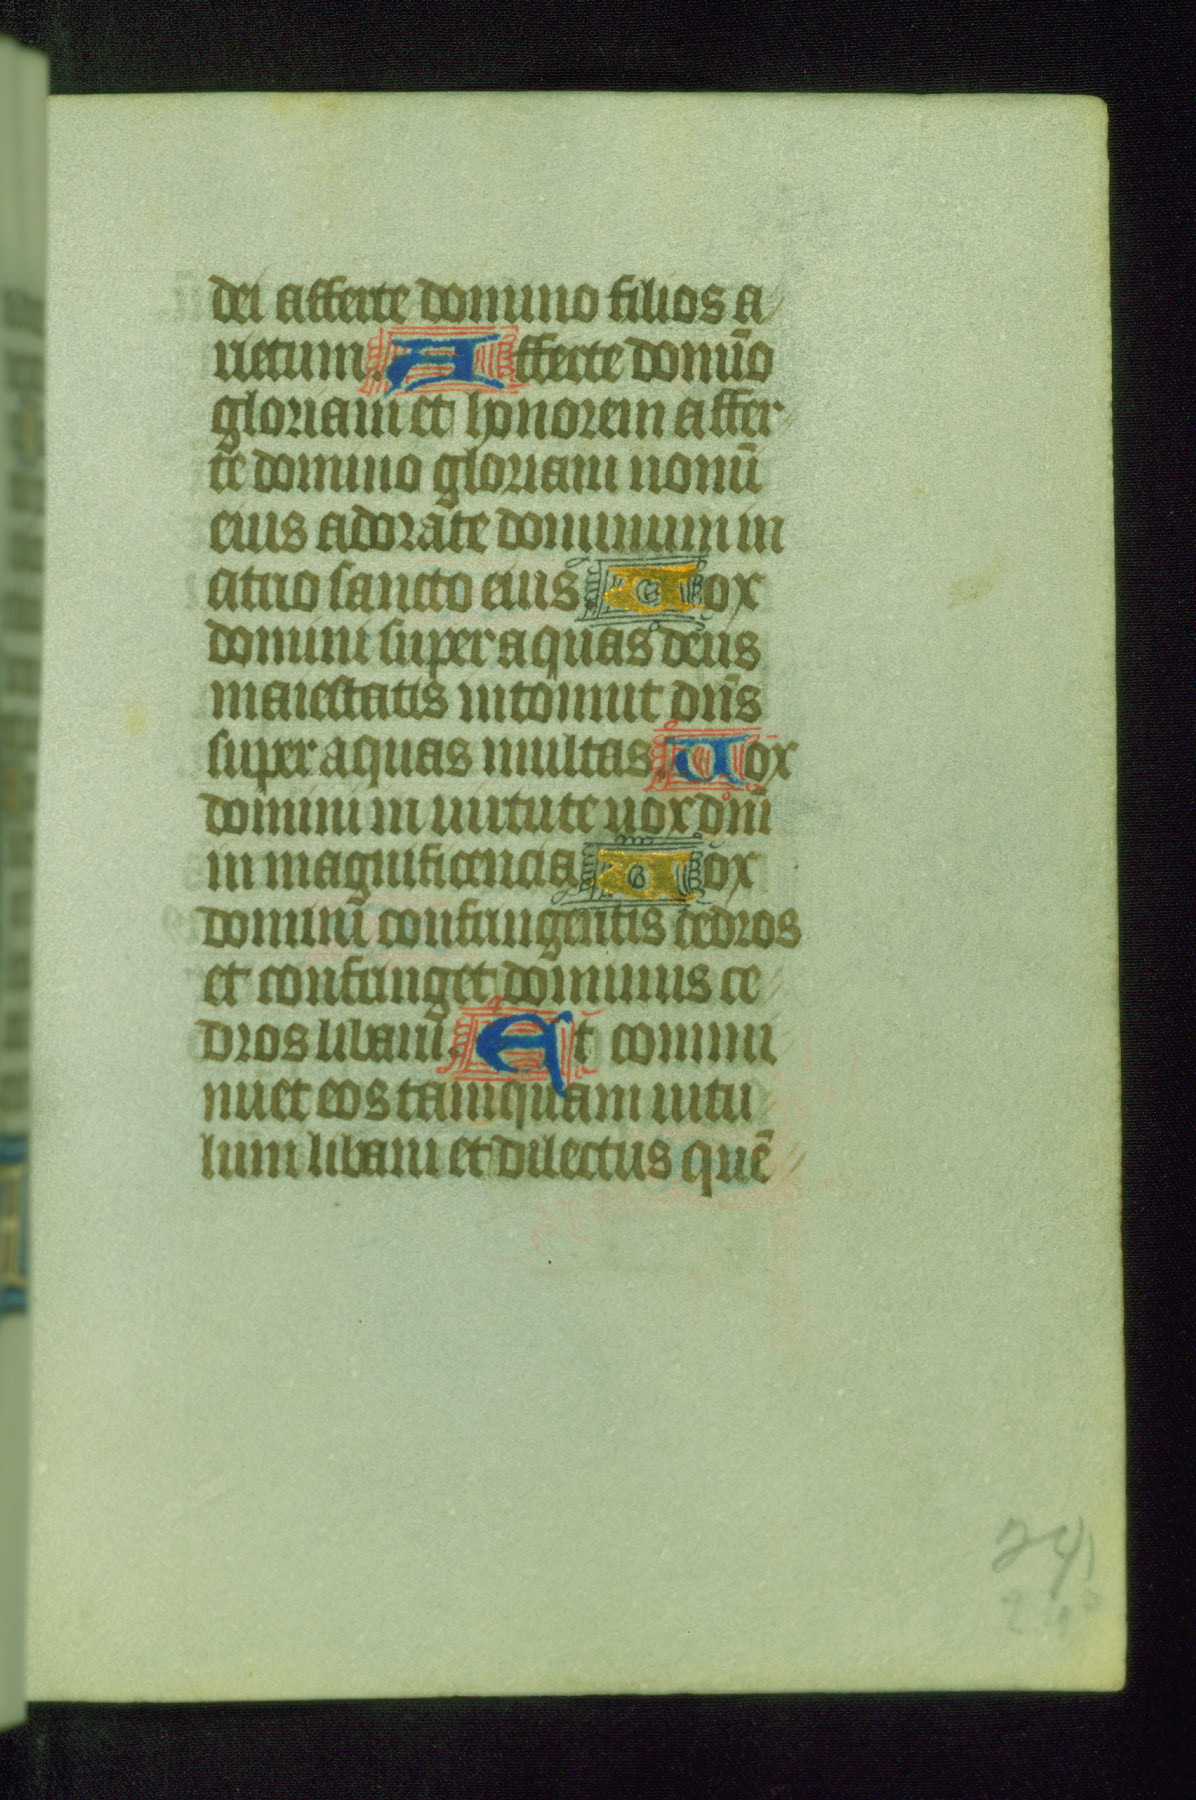 dei afferte domino filios a
rietum. Afferte domīo
gloriam et honorem affer
te domino gloriam nomī
eius adorate dominum in
atrio sancto eius Uox
domini super aquas deus
maiestatis intonuit dn̄s
super aquas multas. Uox
domini in uirtute uox dn̄i
in magnificencia Uox
domini confringentis cedros
et confringet dominus ce
dros libani. Et commi
nuet eos tamquam uitu
lum libani et dilectus quē
24
24